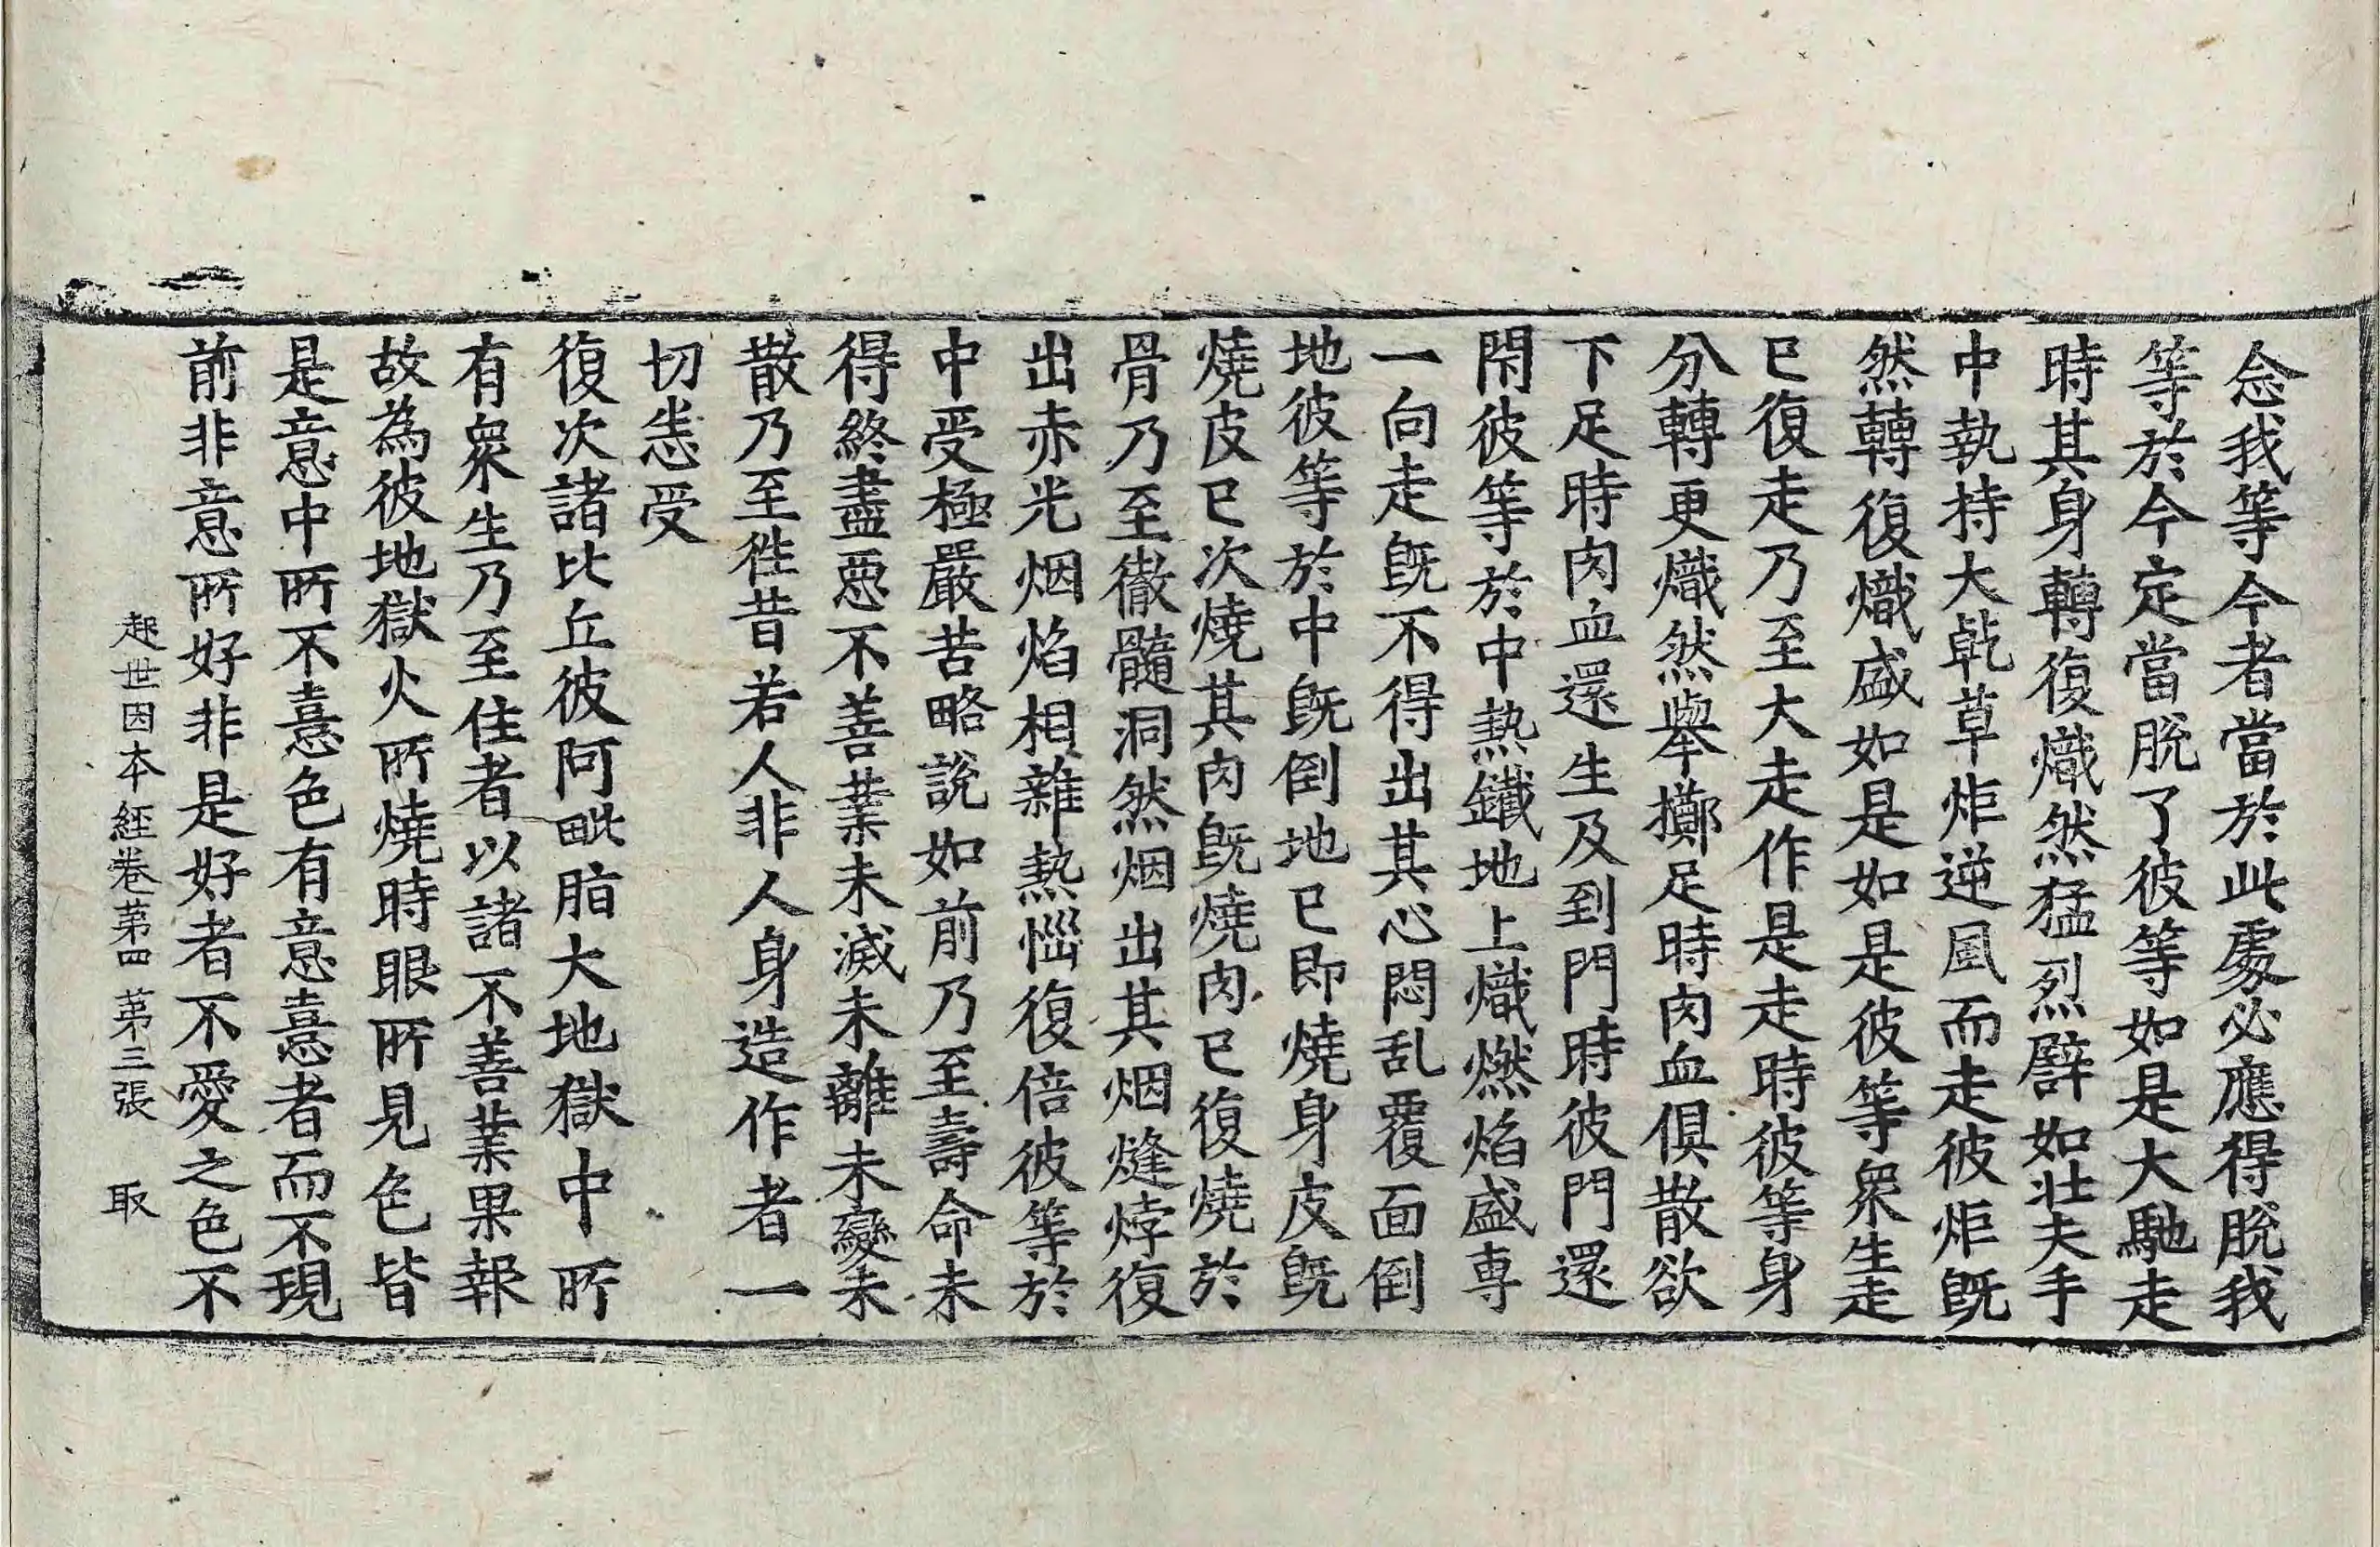 念我等今者當於此處必應得脫我
等於今定當脫了彼等如是大馳走
時其身轉復熾然猛烈譬如壯夫手
中執持大乹草炬逆風而走彼炬既
然轉復熾盛如是如是彼等衆生走
已復走乃至大走作是走時彼等身
分轉更熾然舉擲足時肉血俱散欲
下足時肉血還生及到門時彼門還
閇彼等於中熱鐵地上熾燃焰盛専
一向走既不得出其心悶乱覆面倒
地彼等於中既倒地已即燒身皮既
燒皮已次燒其肉既燒肉已復燒於
骨乃至徹髓洞然烟出其烟熢㶿復
出赤光烟焰相雜熱惱復倍彼等於
中受極嚴苦略說如前乃至壽命未
得終盡惡不善業未滅未離未變未
散乃至徃昔若人非人身造作者一
切悉受
復次諸比丘彼阿毗脂大地獄中所
有衆生乃至住者以諸不善業果報
故為彼地獄火所燒時眼所見色皆
是意中所不憙色有意憙者而不現
前非意所好非是好者不愛之色不
起世因本經卷第四　第三張　取